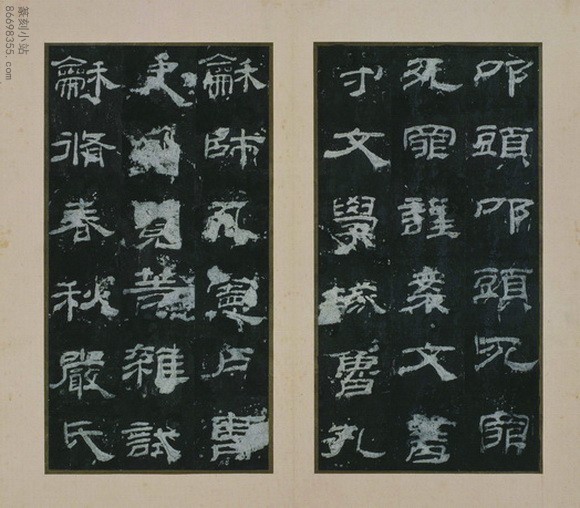 叩頭叩頭死罪
死罪謹案文書
守文學掾魯孔
龢師孔憲戶曹
史孔覽等雜試
龢脩春秋嚴氏
篆刻小站
86698355.com